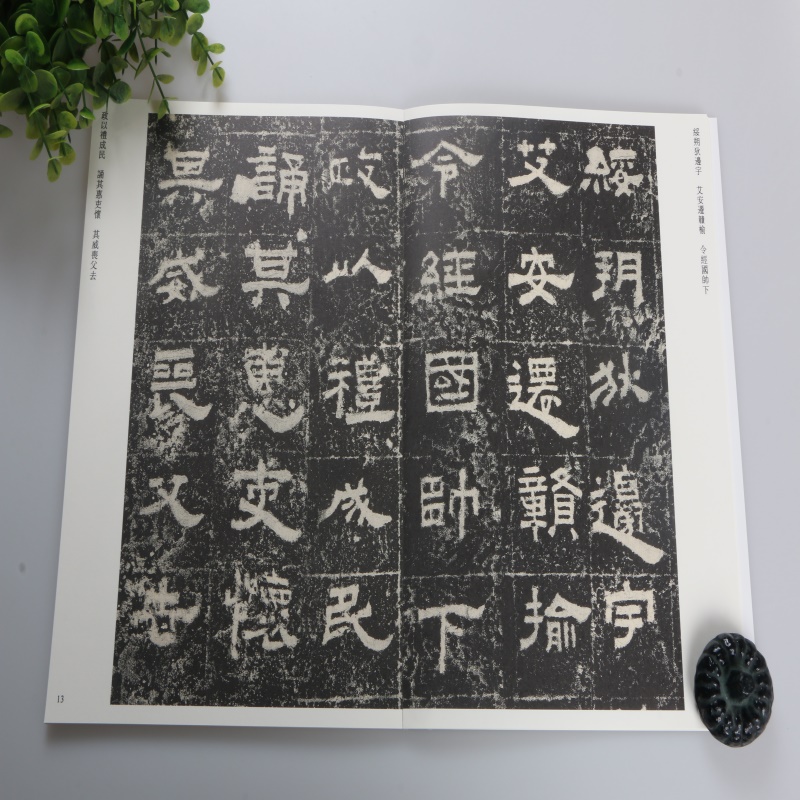 綏朔狄邊宇 艾安遷贛榆 令經國帥下
綏朔狄邊宇
艾安遷贛揄
令經國帥下
政以禮成民
誦其惠吏懷
其威喪父去
政以禮成民 誦其惠吏懷 其威喪父去
13